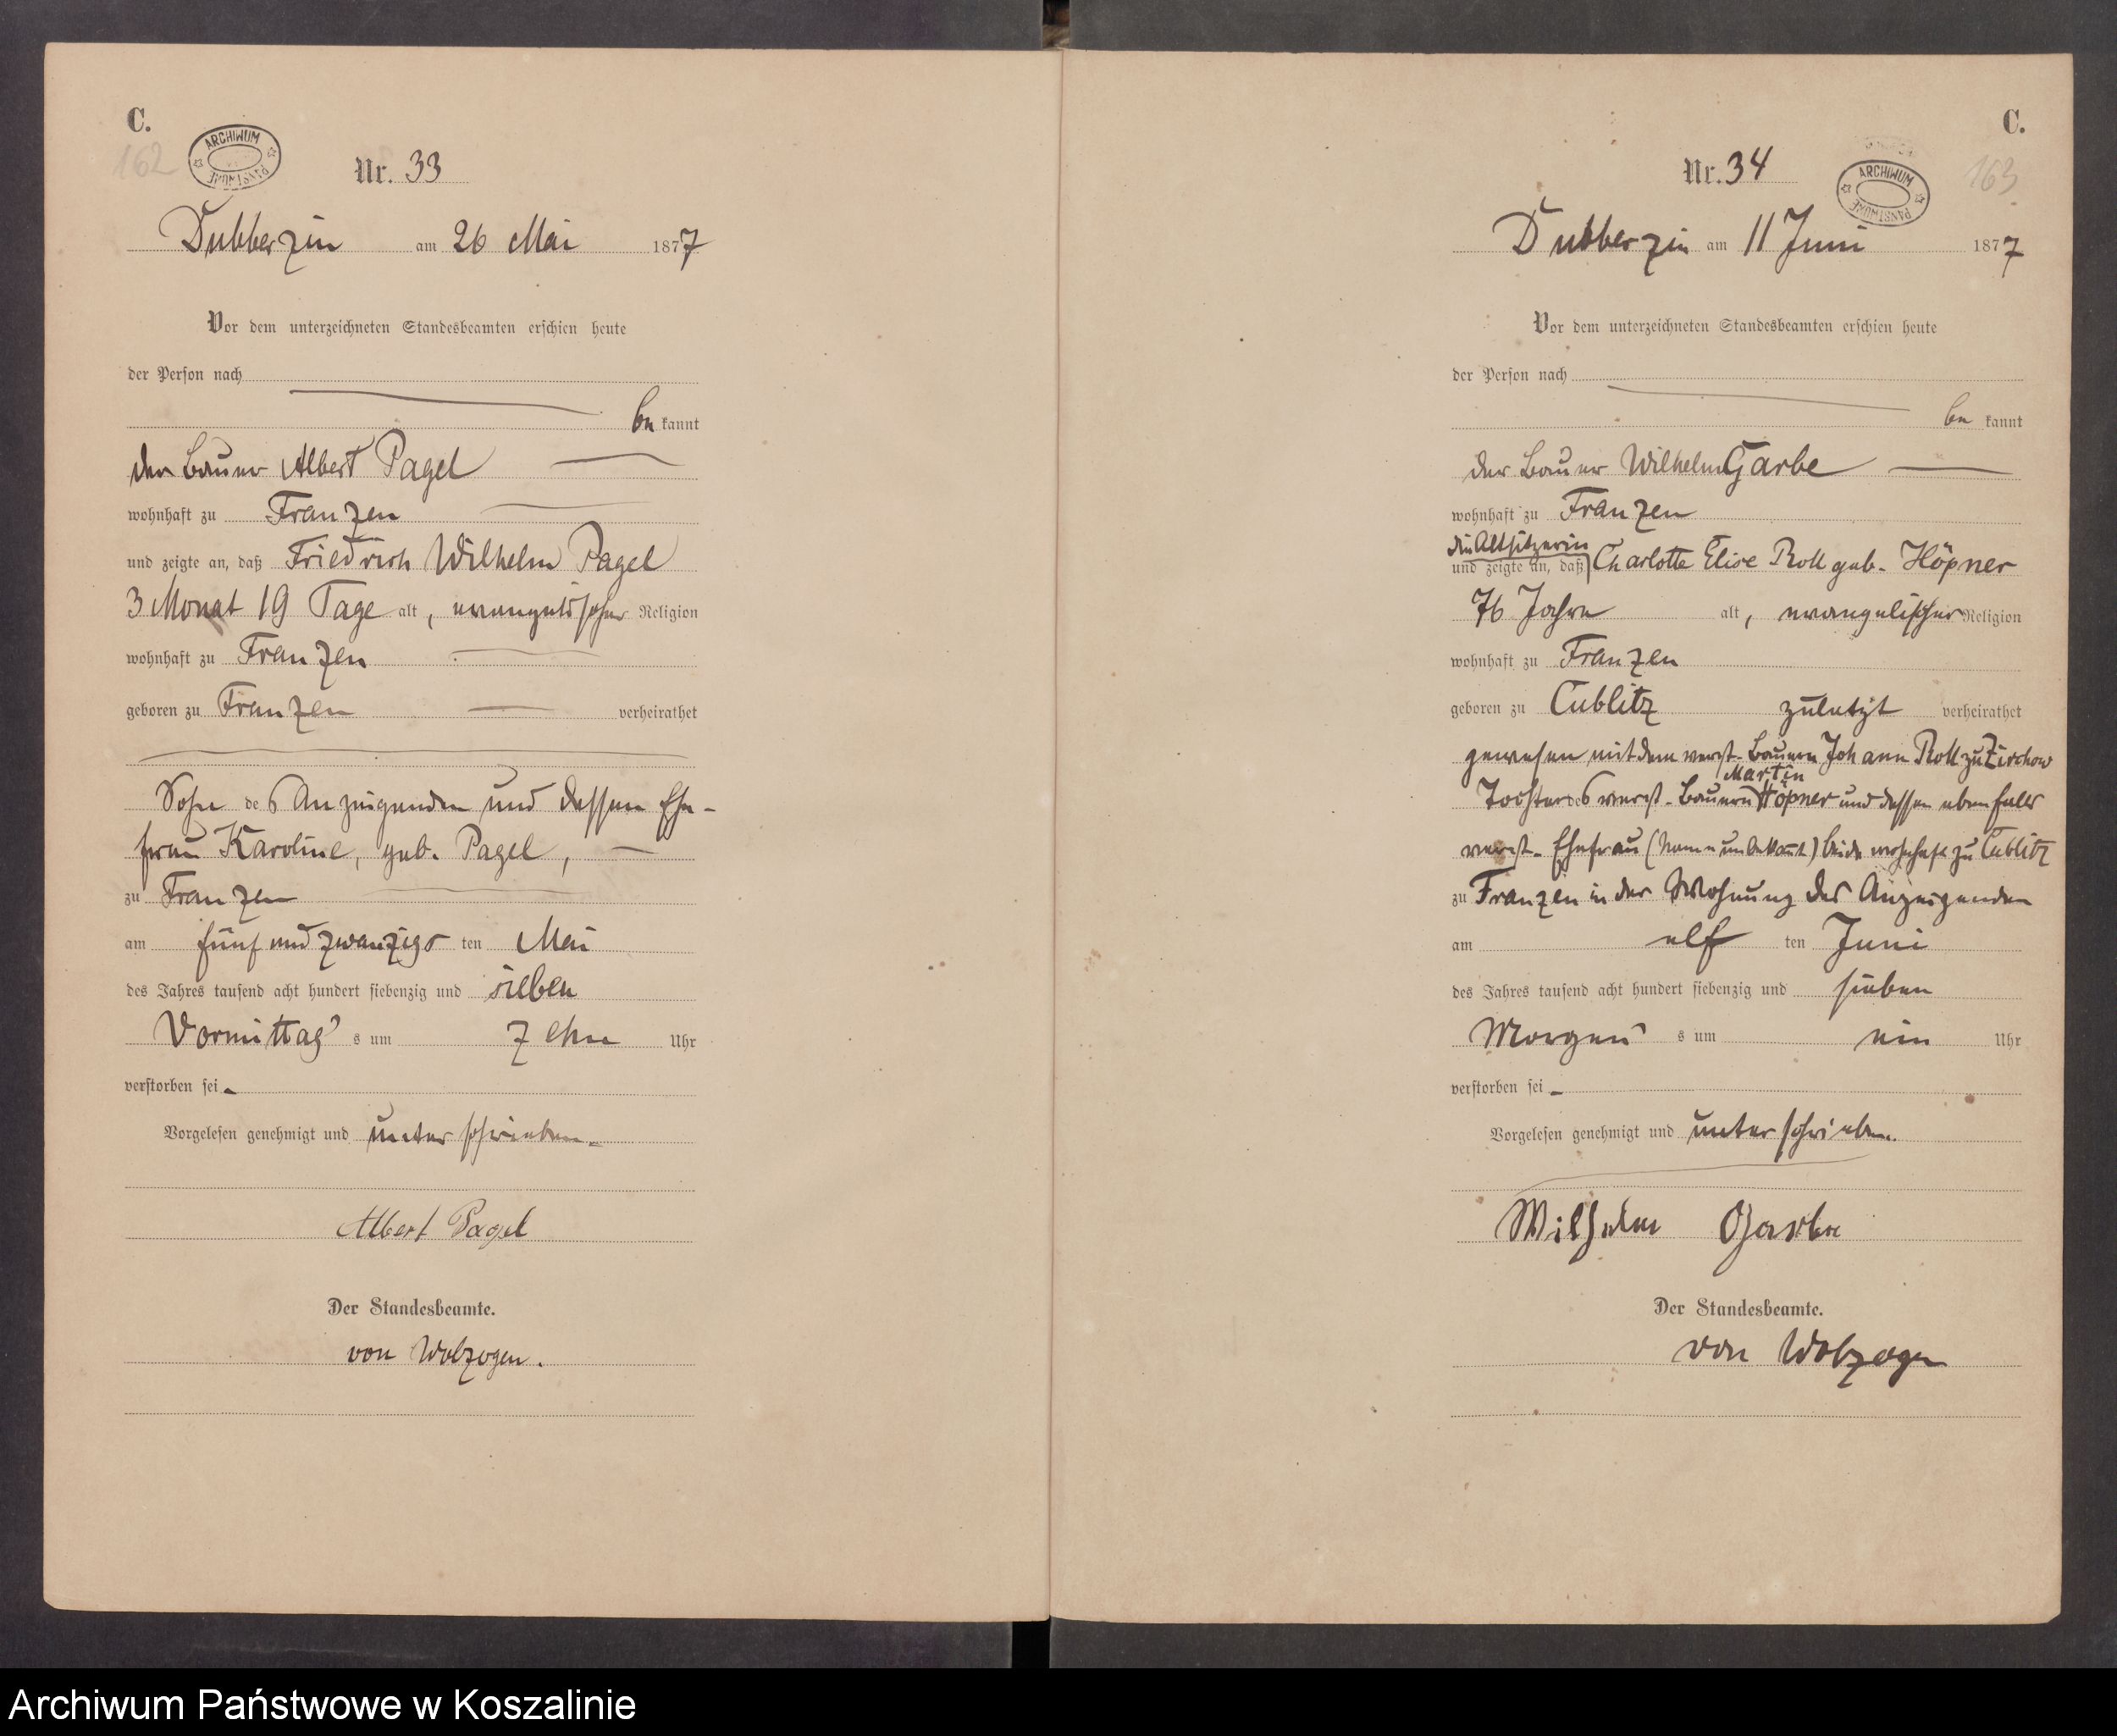 C.
162
ARCHIWUM PAŃSTWOWE
Nr. 33
Dubberzin am 26 Mai 1877
Vor dem unterzeichneten Standesbeamten erschien heute
der Person nach
be kannt
der Bauer Albert Pagel
wohnhaft zu Franzen
und zeigte an, daß Friedrich Wilhelm Pagel
3 Monat 19 Tage alt, evangelischer Religion
wohnhaft zu Franzen
geboren zu Franzen verheirathet
Sohn des Anzeigenden und dessen Ehe-
frau Karoline, geb. Pagel,
zu Franzen
am fünf und zwanzigs ten Mai
des Jahres tausend acht hundert siebenzig und sieben
Vormittag s um zehn Uhr
verstorben sei.
Vorgelesen genehmigt und unterschrieben.
Albert Pagel
Der Standesbeamte.
von Wolzogen.
C.
163
ARCHIWUM PAŃSTWOWE
Nr. 34
Dubberzin am 11 Juni 1877
Vor dem unterzeichneten Standesbeamten erschien heute
der Person nach
be kannt
der Bauer Wilhelm Garbe
wohnhaft zu Franzen
die Altsitzerin
und zeigte an, daß Charlotte Elise Roll geb. Höpner
76 Jahre alt, evangelischer Religion
wohnhaft zu Franzen
geboren zu Cublitz zuletzt verheirathet
gewesen mit dem verst. Bauern Johann Roll zu Zirchow
Martin
Tochter des verst. Bauern Höpner und dessen ebenfalls
verst. Ehefrau (Name unbekannt) beide wohnhaft zu Cublitz
zu Franzen in der Wohnung des Anzeigenden
am elf ten Juni
des Jahres tausend acht hundert siebenzig und sieben
Morgen s um ein Uhr
verstorben sei.
Vorgelesen genehmigt und unterschrieben.
Wilhelm Garbe
Der Standesbeamte.
von Wolzogen
Archiwum Państwowe w Koszalinie